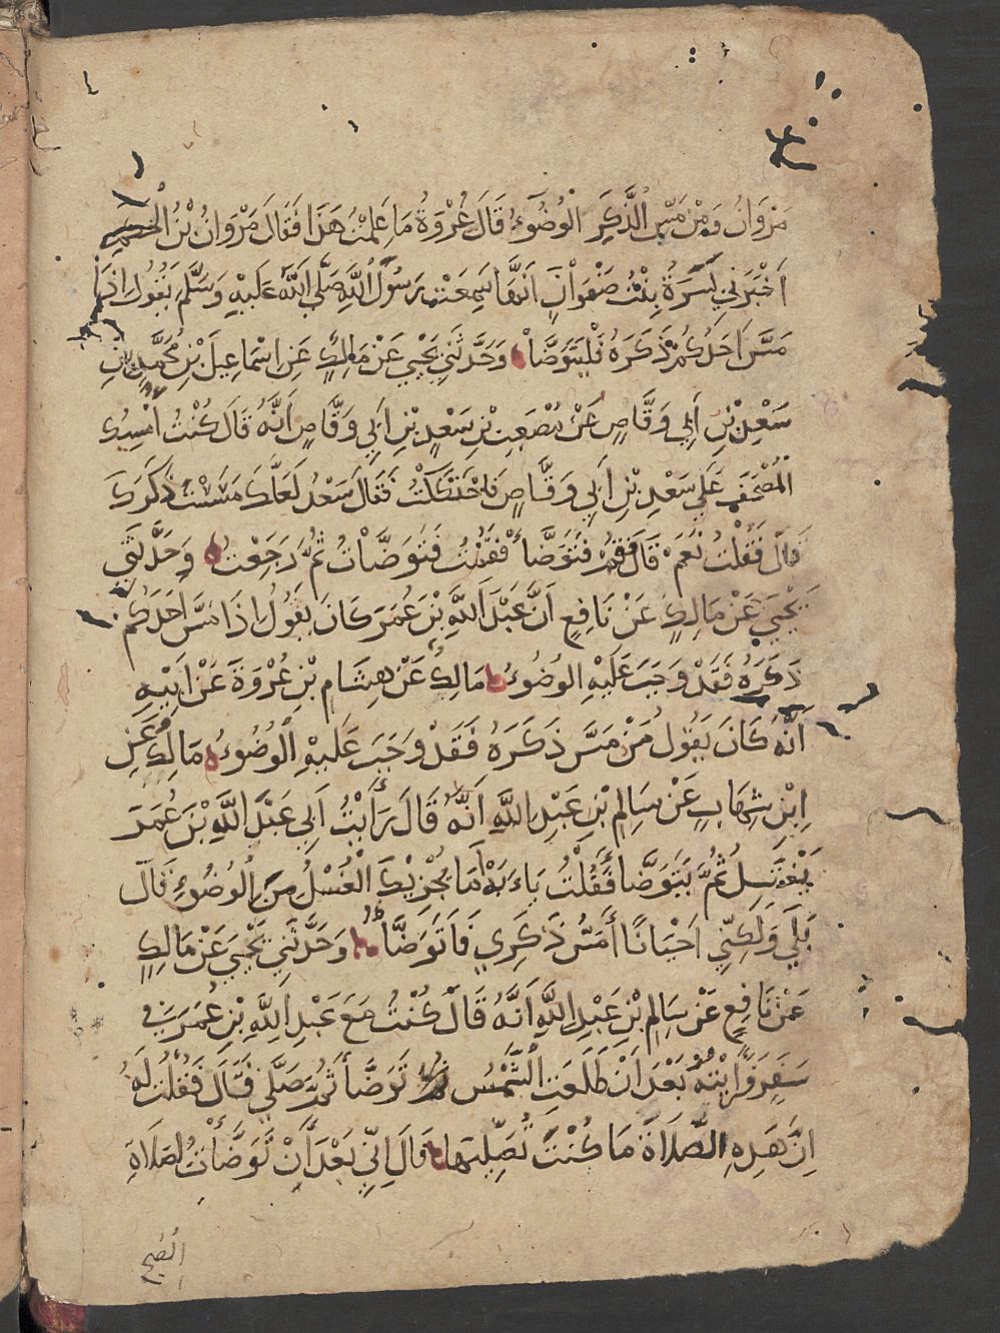 مَرْوَانُ وَمِنْ مَسِّ الذَّكَرِ الْوُضُوءُ قَالَ عُرْوَةُ مَا عَلِمْتُ هَذَا فَقَالَ مَرْوَانُ بْنُ الْحَكَمِ
أَخْبَرَتْنِي بُسْرَةُ بِنْتُ صَفْوَانَ أَنَّهَا سَمِعَتْ رَسُولَ اللَّهِ صَلَّى اللَّهُ عَلَيْهِ وَسَلَّمَ يَقُولُ إِذَا
مَسَّ أَحَدُكُمْ ذَكَرَهُ فَلْيَتَوَضَّأْ وَحَدَّثَنِي يَحْيَى عَنْ مَالِكٍ عَنْ اِسْمَاعِيلَ بْنِ مُحَمَّدِ بْنِ
سَعْدِ بْنِ أَبِي وَقَّاصٍ عَنْ مُصْعَبِ بْنِ سَعْدِ بْنِ أَبِي وَقَّاصٍ أَنَّهُ قَالَ كُنْتُ أُمْسِكُ
الْمُصْحَفَ عَلَى سَعْدِ بْنِ أَبِي وَقَّاصٍ فَاحْتَكَكْتُ فَقَالَ سَعْدٌ لَعَلَّكَ مَسَسْتَ ذَكَرَكَ
قَالَ فَقُلْتُ نَعَمْ قَالَ فَقُمْ فَتَوَضَّأْ فَقُمْتُ فَتَوَضَّأْتُ ثُمَّ رَجَعْتُ وَحَدَّثَنِي
يَحْيَى عَنْ مَالِكٍ عَنْ نَافِعٍ أَنَّ عَبْدَ اللَّهِ بْنَ عُمَرَ كَانَ يَقُولُ إِذَا مَسَّ أَحَدُكُمْ
ذَكَرَهُ فَقَدْ وَجَبَ عَلَيْهِ الْوُضُوءُ مَالِكٌ عَنْ هِشَامِ بْنِ عُرْوَةَ عَنْ أَبِيهِ
أَنَّهُ كَانَ يَقُولُ مَنْ مَسَّ ذَكَرَهُ فَقَدْ وَجَبَ عَلَيْهِ الْوُضُوءُ مَالِكٌ عَنِ
ابْنِ شِهَابٍ عَنْ سَالِمِ بْنِ عَبْدِ اللَّهِ أَنَّهُ قَالَ رَأَيْتُ أَبِي عَبْدَ اللَّهِ بْنَ عُمَرَ
يَغْتَسِلُ ثُمَّ يَتَوَضَّأُ فَقُلْتُ يَا أَبَهْ أَمَا يُجْزِيكَ الْغُسْلُ مِنَ الْوُضُوءِ قَالَ
بَلَى وَلَكِنِّي أَحْيَانًا أَمَسُّ ذَكَرِي فَأَتَوَضَّأُ وَحَدَّثَنِي يَحْيَى عَنْ مَالِكٍ
عَنْ نَافِعٍ عَنْ سَالِمِ بْنِ عَبْدِ اللَّهِ أَنَّهُ قَالَ كُنْتُ مَعَ عَبْدِ اللَّهِ بْنِ عُمَرَ فِي
سَفَرٍ فَرَأَيْتُهُ بَعْدَ أَنْ طَلَعَتِ الشَّمْسُ تَوَضَّأَ ثُمَّ صَلَّى قَالَ فَقُلْتُ لَهُ
إِنَّ هَذِهِ الصَّلَاةَ مَا كُنْتَ تُصَلِّيهَا قَالَ إِنِّي بَعْدَ أَنْ تَوَضَّأْتُ لِصَلَاةِ
الصبح